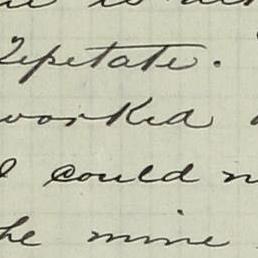 is
Tepetate.
worked
I could
the mine